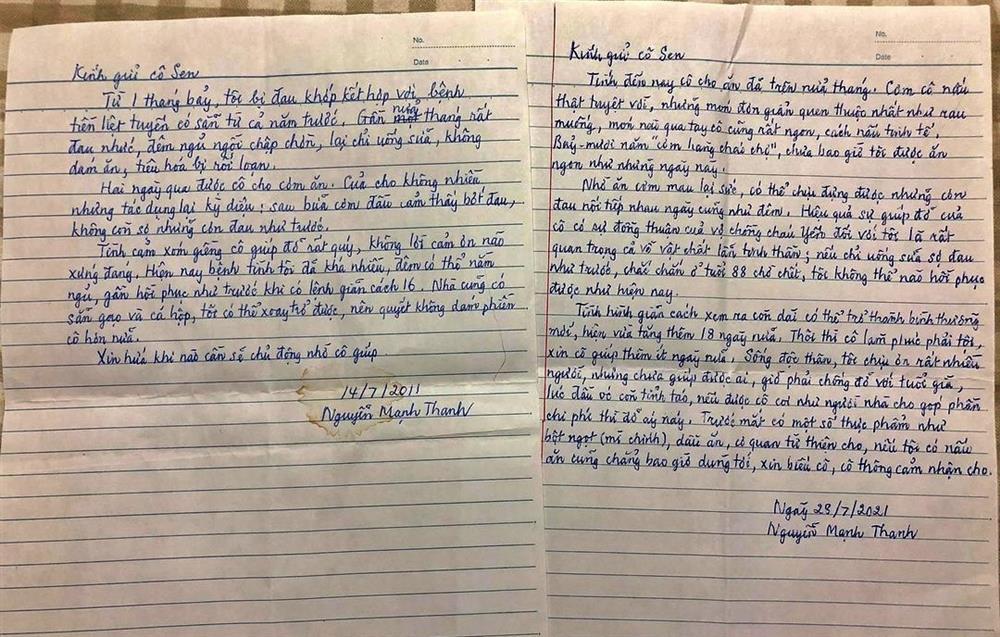 No.
Date
Kính gửi cô Sen
Từ 1 tháng bảy, tôi bị đau khớp kết hợp với bệnh
tiền liệt tuyến có sẵn từ cả năm trước. Gần nửa tháng rất
đau nhức, đêm ngủ ngồi chập chờn, lại chỉ uống sữa, không
dám ăn, tiêu hoá bị rối loạn.
Hai ngày qua được cô cho cơm ăn. Của cho không nhiều
nhưng tác dụng lại kỳ diệu; sau bữa cơm đầu cảm thấy bớt đau,
không còn sợ những cơn đau như trước.
Tình cảm xóm giềng cô giúp đỡ rất quý, không lời cảm ơn nào
xứng đáng. Hiện nay bệnh tình tôi đã khá nhiều, đêm có thể nằm
ngủ, gần hồi phục như trước khi có lệnh giãn cách 16. Nhà cũng có
sẵn gạo và cá hộp, tôi có thể xoay trở được, nên quyết không dám phiền
cô hơn nữa.
Xin hứa khi nào cần sẽ chủ động nhờ cô giúp.
14/7/2011
Nguyễn Mạnh Thanh
No.
Date
Kính gửi cô Sen
Tính đến nay cô cho ăn đã trên nửa tháng. Cơm cô nấu
thật tuyệt vời, những món đơn giản quen thuộc nhất như rau
muống, món nào qua tay cô cũng rất ngon, cách nấu tinh tế.
Bảy-mươi năm "cơm hàng cháo chợ", chưa bao giờ tôi được ăn
ngon như những ngày nay.
Nhờ ăn cơm mau lại sức, có thể chịu đựng được những cơn
đau nối tiếp nhau ngày cũng như đêm. Hiệu quả sự giúp đỡ của
cô có sự đồng thuận của vợ chồng cháu Yến đối với tôi là rất
quan trọng cả về vật chất lẫn tinh thần; nếu chỉ uống sữa sợ đau
như trước, chắc chắn ở tuổi 88 chờ chết, tôi không thể nào hồi phục
được như hiện nay.
Tình hình giãn cách xem ra còn dài có thể trở thành bình thường
mới, hiện vừa tăng thêm 18 ngày nữa. Thôi thì cô làm phước phải tội,
xin cô giúp thêm ít ngày nữa. Sống độc thân, tôi chịu ơn rất nhiều
người, nhưng chưa giúp được ai, giờ phải chống đỡ với tuổi già,
lúc đầu óc còn tỉnh táo, nếu được cô coi như người nhà cho góp phần
chi phí thì đỡ áy náy. Trước mắt có một số thực phẩm như
bột ngọt (mì chính), dầu ăn, cơ quan từ thiện cho, nếu tôi có nấu
ăn cũng chẳng bao giờ dùng tới, xin biếu cô, cô thông cảm nhận cho.
Ngày 28/7/2021
Nguyễn Mạnh Thanh